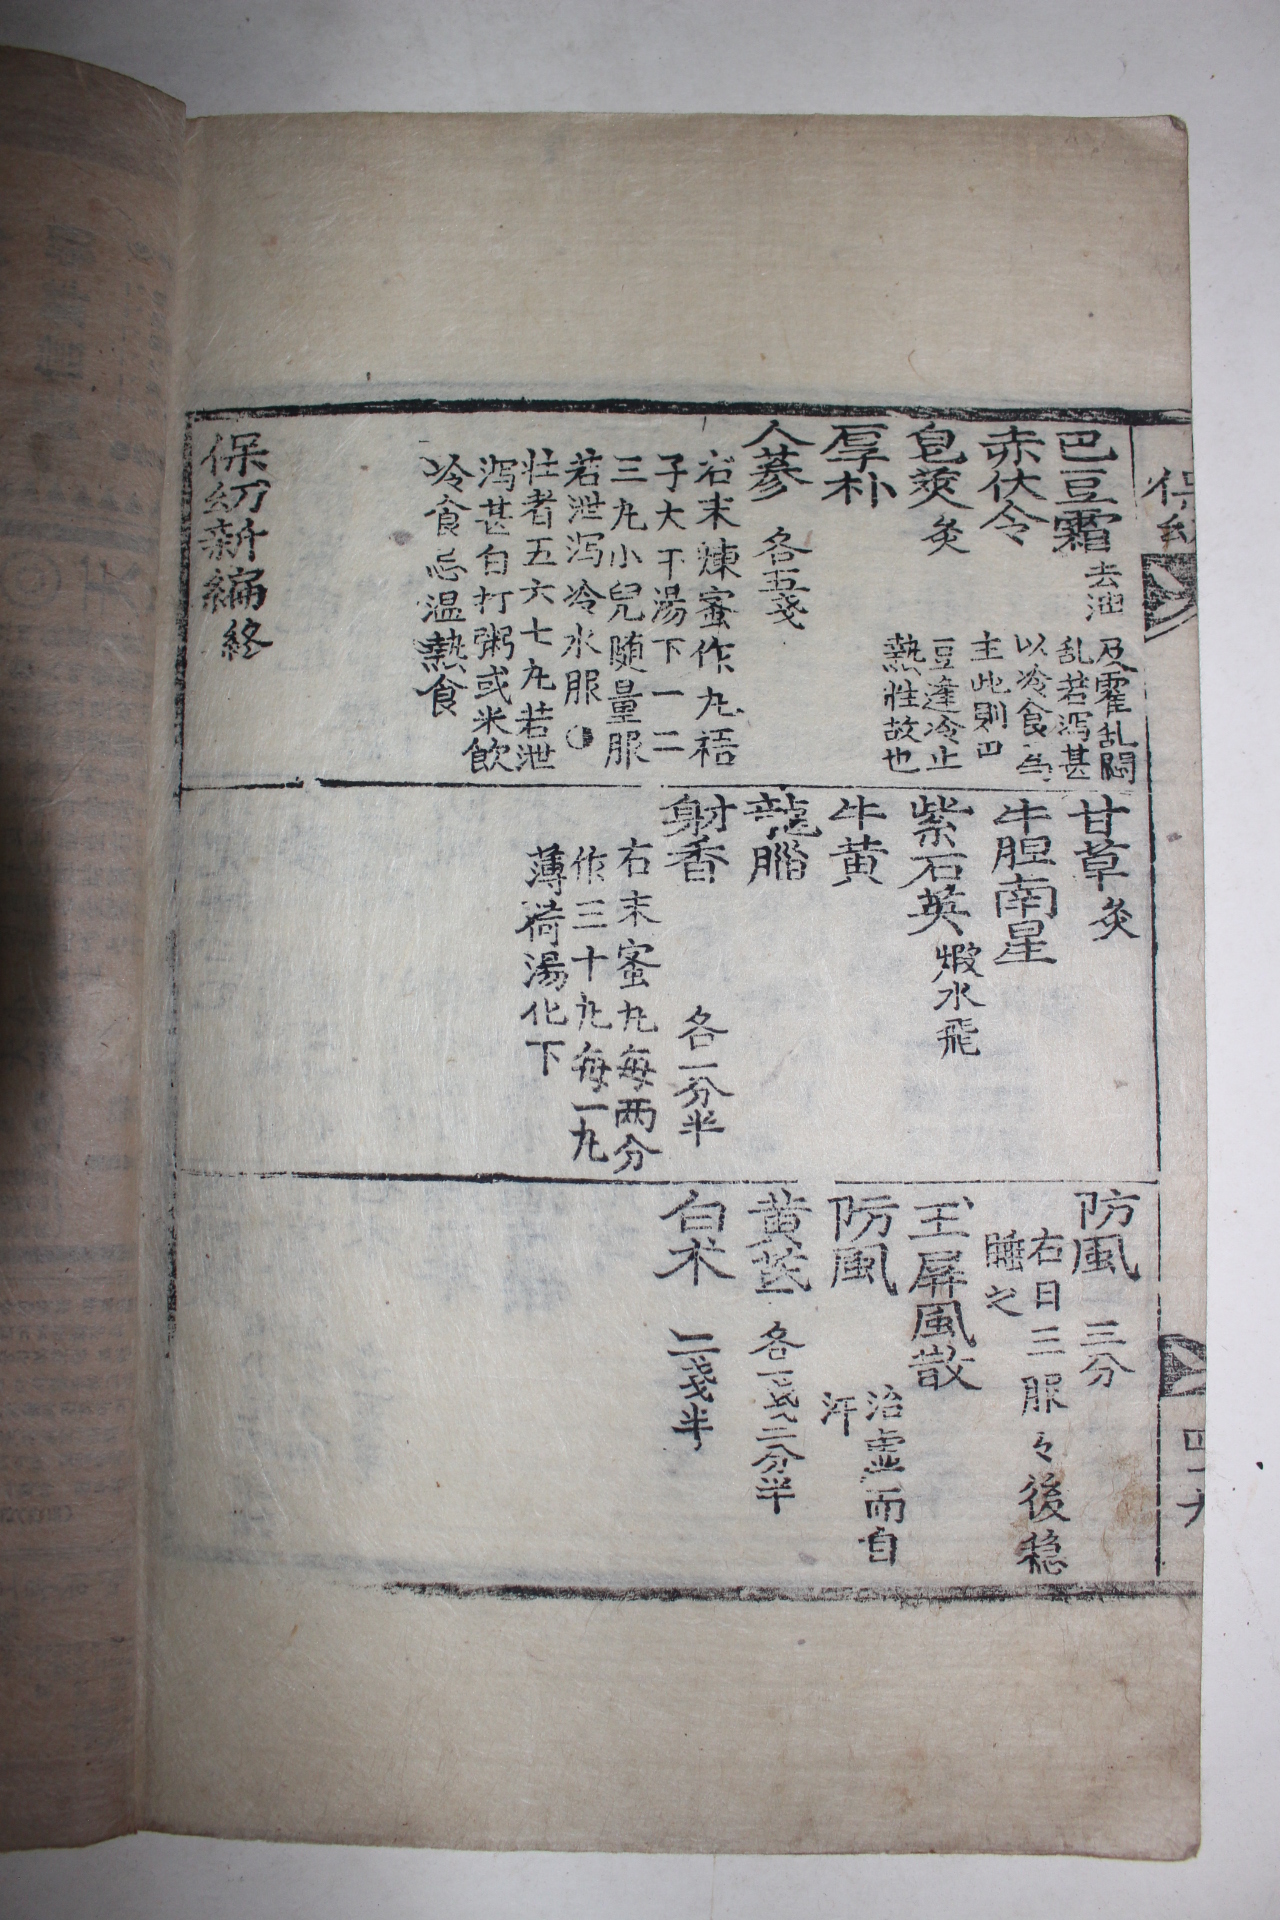 保幼
巴豆霜 去油
赤伏令
皂莢 灸
厚朴
人蔘 各五戔
及霍乱悶
乱若泻甚
以冷食為
主此則巴
豆逢冷止
熱性故也
右末煉蜜作九梧
子大 湯下一二
三九小兒随量服
若泄泻冷水服
壮者五六七九若泄
泻甚白打粥或米飲
冷食忌温熱食
保幼新編終
甘草 灸
牛胆南星
紫石英 煆水飛
牛黄
龍腦
射香 各一分半
右末蜜九每两分
作三十九每一九
薄荷湯化下
防風 三分
右日三服々後穏
睡之
玉屏風散 治虚而自
汗
防風
黄芪 各一戔二分半
白术 二戔半
四十九